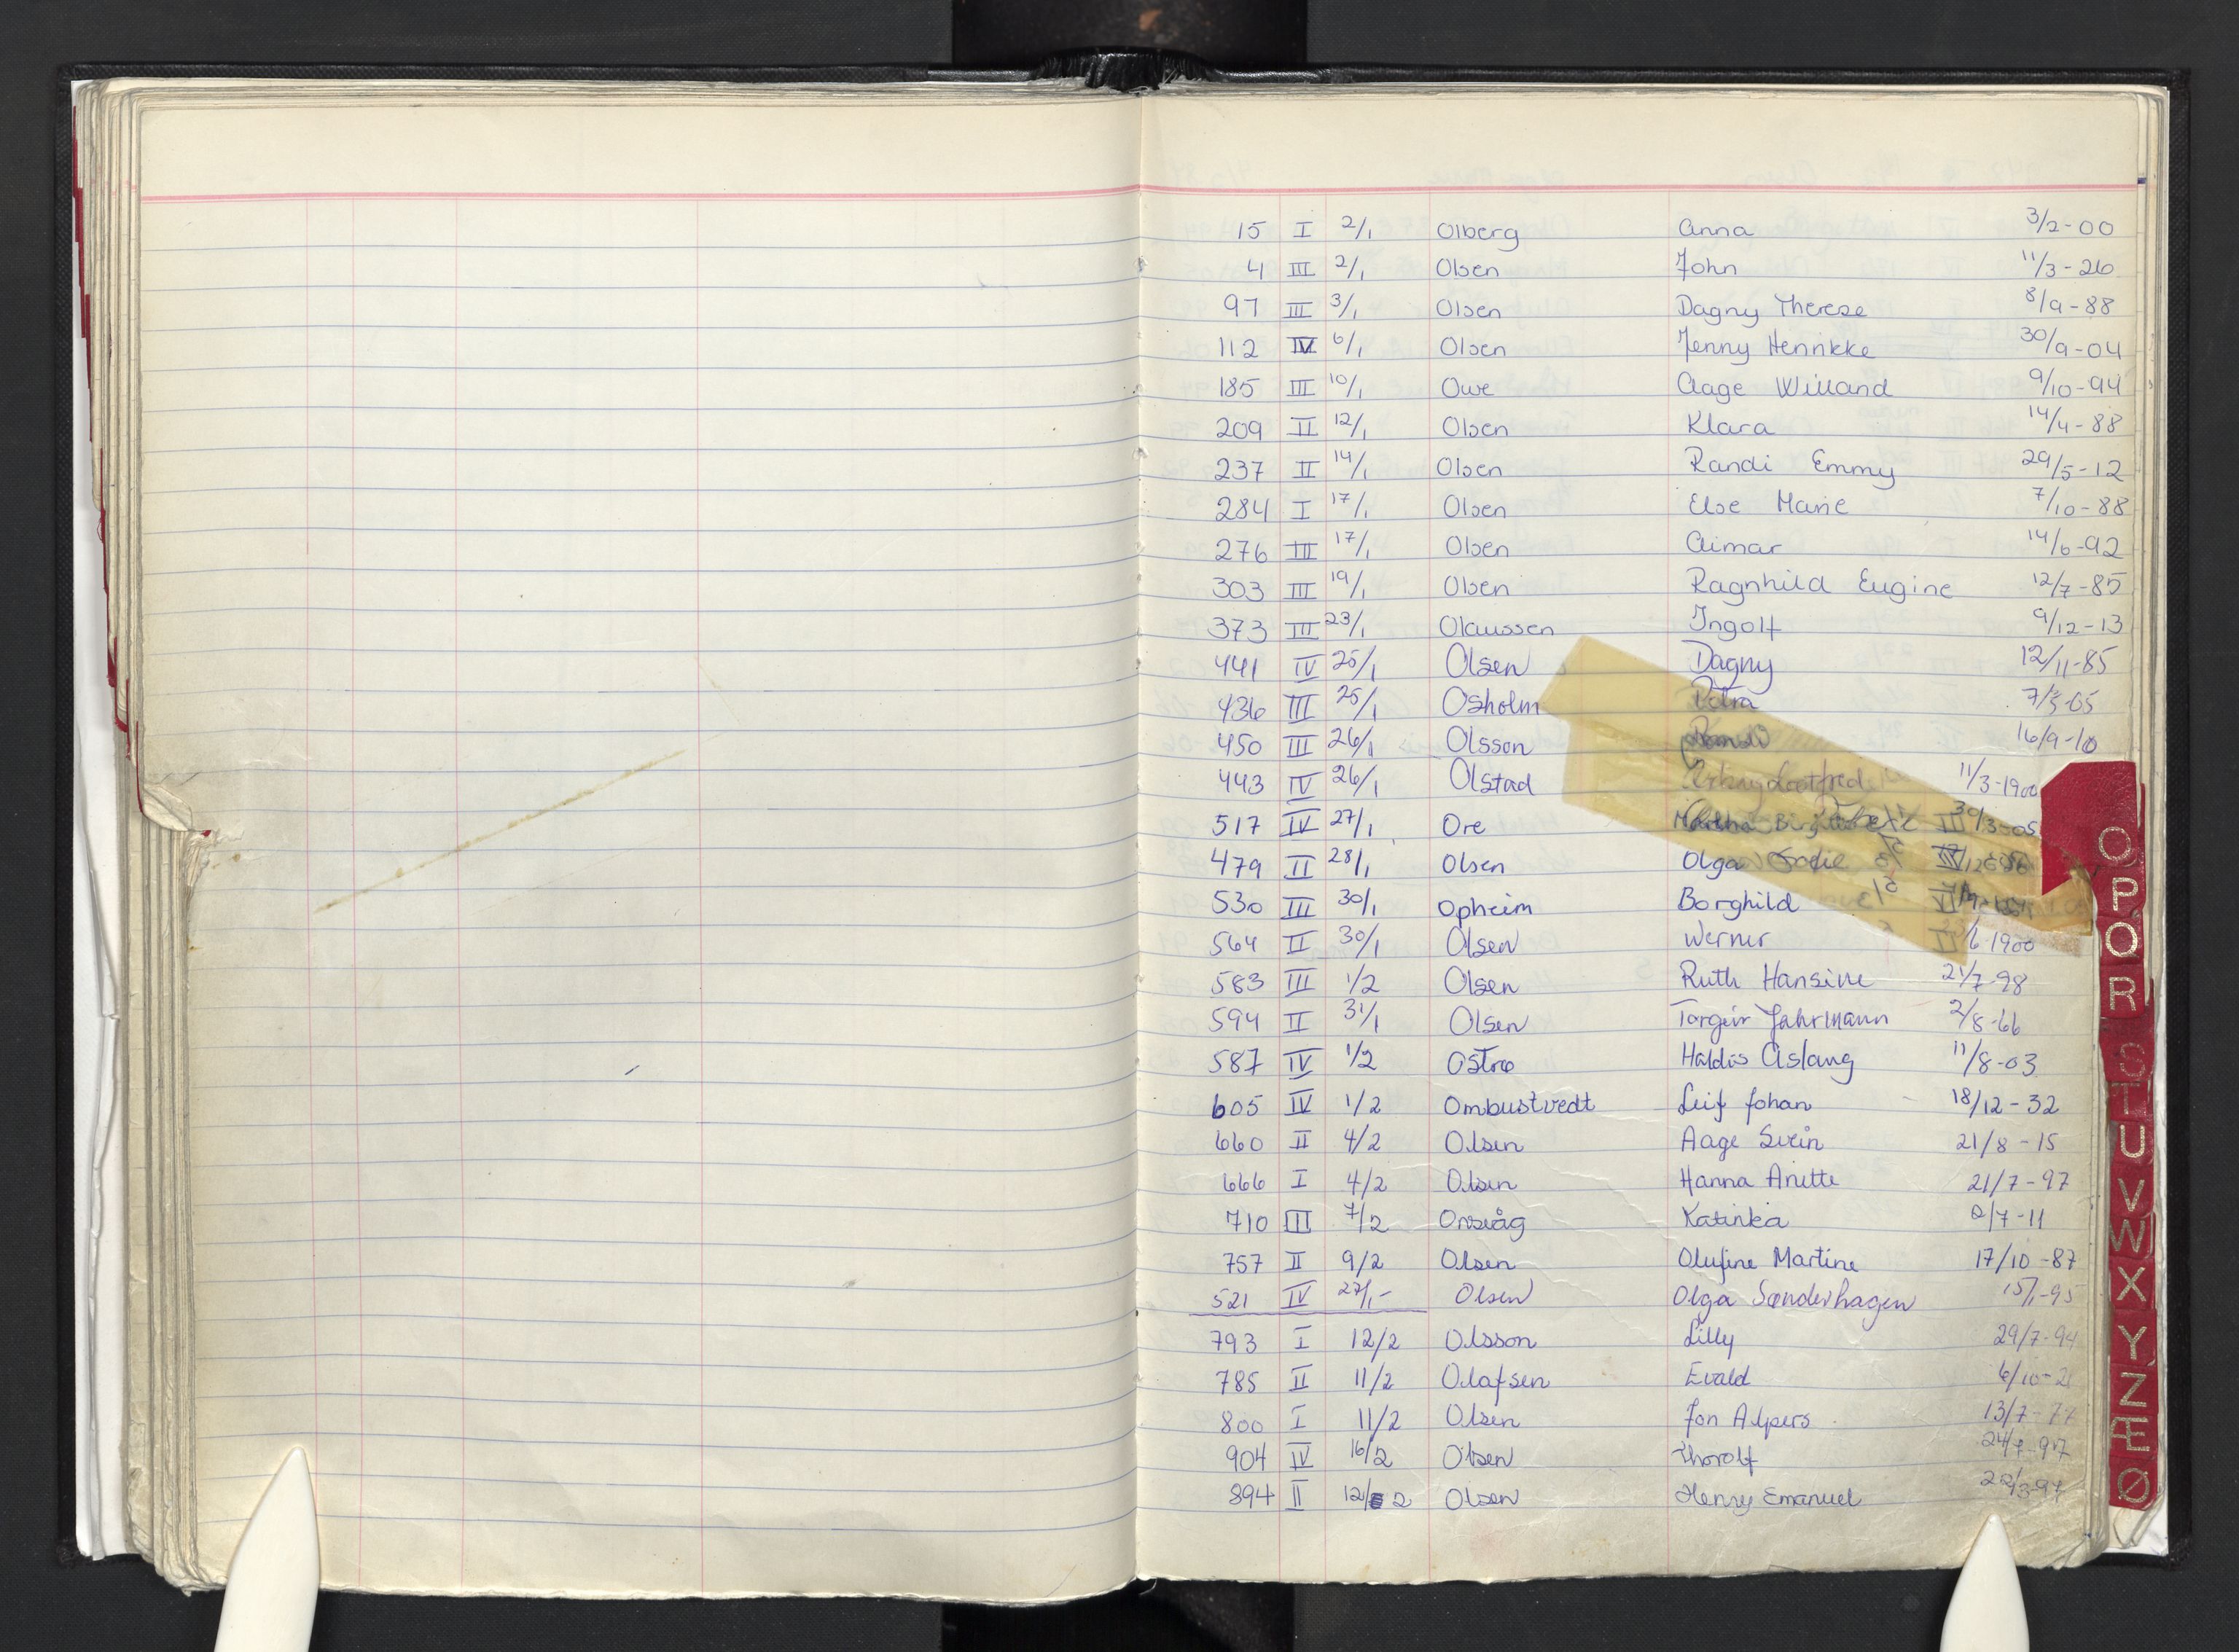 15 I 2/1 Olberg Anna 3/2-00
4 III 2/1 Olsen John 11/3-26
97 III 3/1 Olsen Dagny Therese 8/9-88
112 IV 6/1 Olsen Jenny Henrikke 30/9-04
185 III 10/1 Owe Aage Willand 9/10-94
209 II 12/1 Olsen Klara 14/4-88
237 II 14/1 Olsen Randi Emmy 29/5-12
284 I 17/1 Olsen Else Marie 7/10-88
276 III 17/1 Olsen Aimar 14/6-92
303 III 19/1 Olsen Ragnhild Eugine 12/7-85
373 III 23/1 Olaussen Ingolf 9/12-13
441 IV 25/1 Olsen Dagny 12/11-85
436 III 25/1 Osholm Petra
450 III 26/1 Olsson 16/9-10
443 IV 26/1 Olstad 11/3-1900
517 IV 27/1 Ore
479 II 28/1 Olsen Olga
530 III 30/1 Opheim Borghild
564 II 30/1 Olsen Werner
583 III 1/2 Olsen Ruth Hansine 21/7-98
594 II 31/1 Olsen Torgeir Jahrmann 2/8-66
587 IV 1/2 Ostrø Haldis Aslaug 11/8-03
605 IV 1/2 Ombustvedt Leif Johan 18/12-32
660 II 4/2 Olsen Aage Svein 21/8-15
666 I 4/2 Olsen Hanna Anette 21/7-97
710 III 7/2 Katinka 2/7-11
757 II 9/2 Olsen Olufine Martine 17/10-87
521 IV 27/1- Olsen Olga Sønderhagen 15/1-95
793 I 12/2 Olsson Lilly 29/7-94
785 II 11/2 Olafsen Evald
800 I 11/2 Olsen Jon Alpers 13/7-77
904 IV 16/2 Olsen Thorolf 24/7-97
894 II 12/2 Olsen Henry Emanuel 22/3-97
O
P
Q
R
S
T
U
V
W
X
Y
Z
Æ
Ø